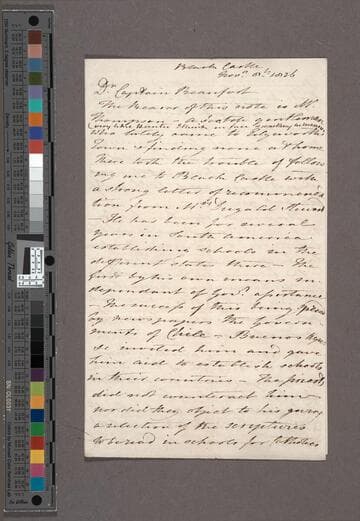 Black Castle
Nov.r 8th 1826
Dr Captain Beaufort
The bearer of this note is Mr.
Thompson – a
who lately came to
Town & finding none at home
there took the trouble of follow
ing me to Black Castle with
a strong letter of recommenda
tion from Mrs Dugald Stewart
– He has been for several
years in South America
establishing schools in the
different states there – The
first by his own means in
dependant of Govt. assistance
– The success of this being spread
by newspapers the Govern
ments of Chile – Buenos Ayres
&c invited him and gave
him aid to establish schools
in their countries – The priests
did not counteract him
nor did they object to his giving
a selection of the scriptures
to be read in schools for Catholics